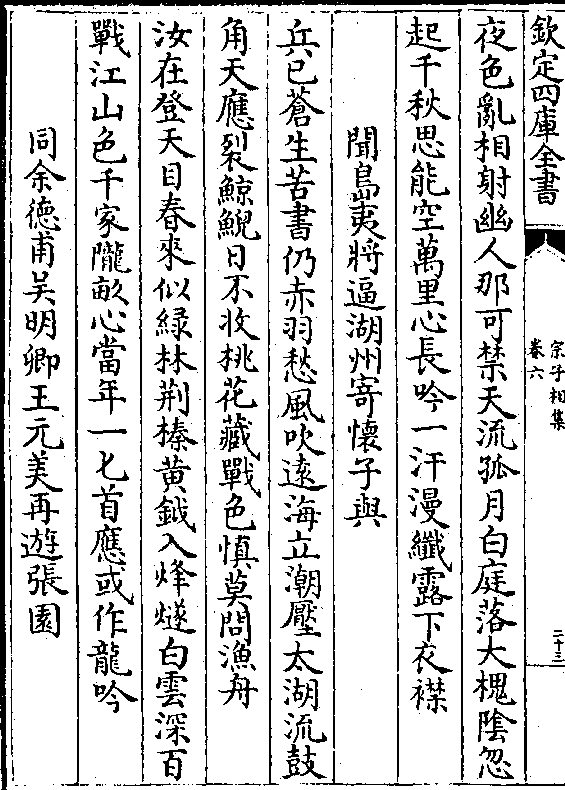 欽定四庫全書
宗子相集
卷六
二十三
夜色亂相射幽人那可禁天流孤月白庭落大槐陰忽
起千秋思能空萬里心長吟一汗漫纖露下衣襟
聞島夷將逼湖州寄懷子與
兵已蒼生苦書仍赤羽愁風吹遠海立潮壓太湖流鼓
角天應裂鯨鯢日不收桃花藏戰色慎莫問漁舟
汝在登天目春來似緑林荆榛黄鉞入烽燧白雲深百
戰江山色千家隴畝心當年一七首應或作龍吟
同余德甫吴明卿王元美再遊張園